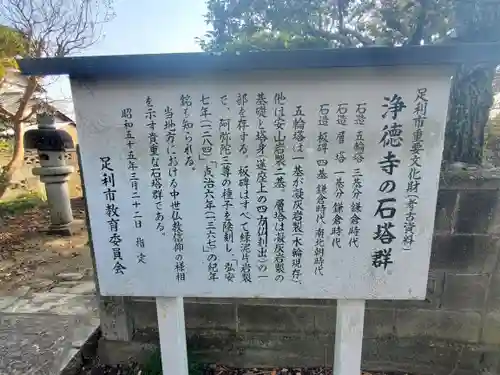 足利市重要文化財（考古資料）
浄徳寺の石塔群
石造 五輪塔 三基分 鎌倉時代
石造 層塔 一基分 鎌倉時代
石造 板碑 四基 鎌倉時代、南北朝時代
五輪塔は一基が凝灰岩製（水輪現存）、
他は安山岩製二基。層塔は凝灰岩製の
基礎と塔身（蓮座上の四方仏刳出）の一
部を存す。板碑はすべて緑泥片岩製
で、阿弥陀三尊の種子を陰刻し、弘安
七年（一二八四）、貞治六年（一三六七）の紀年
銘も知られる。
当地方における中世仏教信仰の一様相
を示す貴重な石塔群である。
昭和五十五年三月二十二日 指定
足利市教育委員会